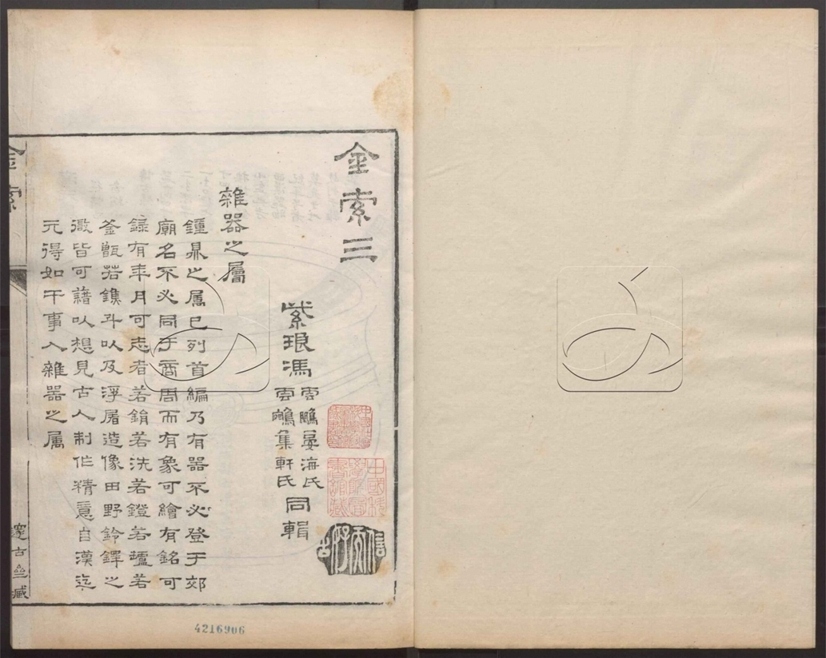 金索三
紫琅馮
雲鵬晏海氏
雲鵷集軒氏
同輯
雜器之屬
鍾鼎之屬已列首編乃有器不必登于郊
廟名不必同于商周而有象可繪有銘可
錄有年月可志者若鋗若洗若鐙若壚若
釜甑若鐎斗以及浮屠造像田野鈴鐸之
微皆可藉以想見古人制作精意自漢迄
元得如干事入雜器之屬
金索
邃古亝藏
信而好古
4216906